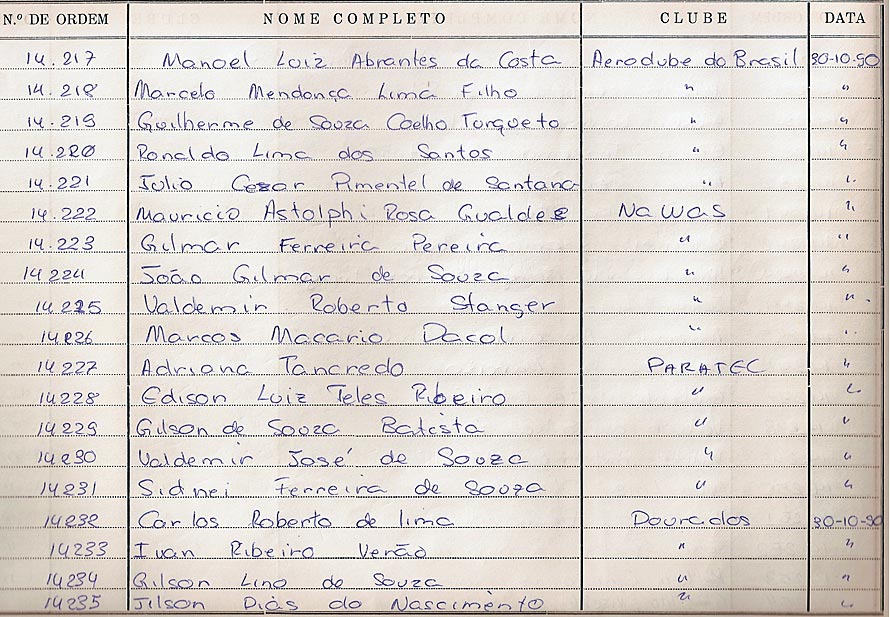 N.º DE ORDEM NOME COMPLETO CLUBE DATA
14.217 Manoel Luiz Abrantes da Costa Aeroclube do Brasil 30-10-90
14.218 Marcelo Mendonça Lima Filho " "
14.219 Guilherme de Souza Coelho Turqueto " "
14.220 Ronaldo Lima dos Santos " "
14.221 Julio Cezar Pimentel de Santana " "
14.222 Mauricio Astolphi Rosa Gualdes Nawas "
14.223 Gilmar Ferreira Pereira " "
14224 João Gilmar de Souza " "
14225 Valdemir Roberto Stanger " "
14226 Marcos Macario Dacol " "
14227 Adriana Tancredo PARATEC "
14228 Edison Luiz Teles Ribeiro " "
14229 Gilson de Souza Batista " "
14230 Valdemir José de Souza " "
14231 Sidnei Ferreira de Souza " "
14232 Carlos Roberto de lima Dourados 30-10-90
14233 Ivan Ribeiro Verão " "
14234 Gilson Lino de Souza " "
14235 Jilson Dias do Nascimento " "